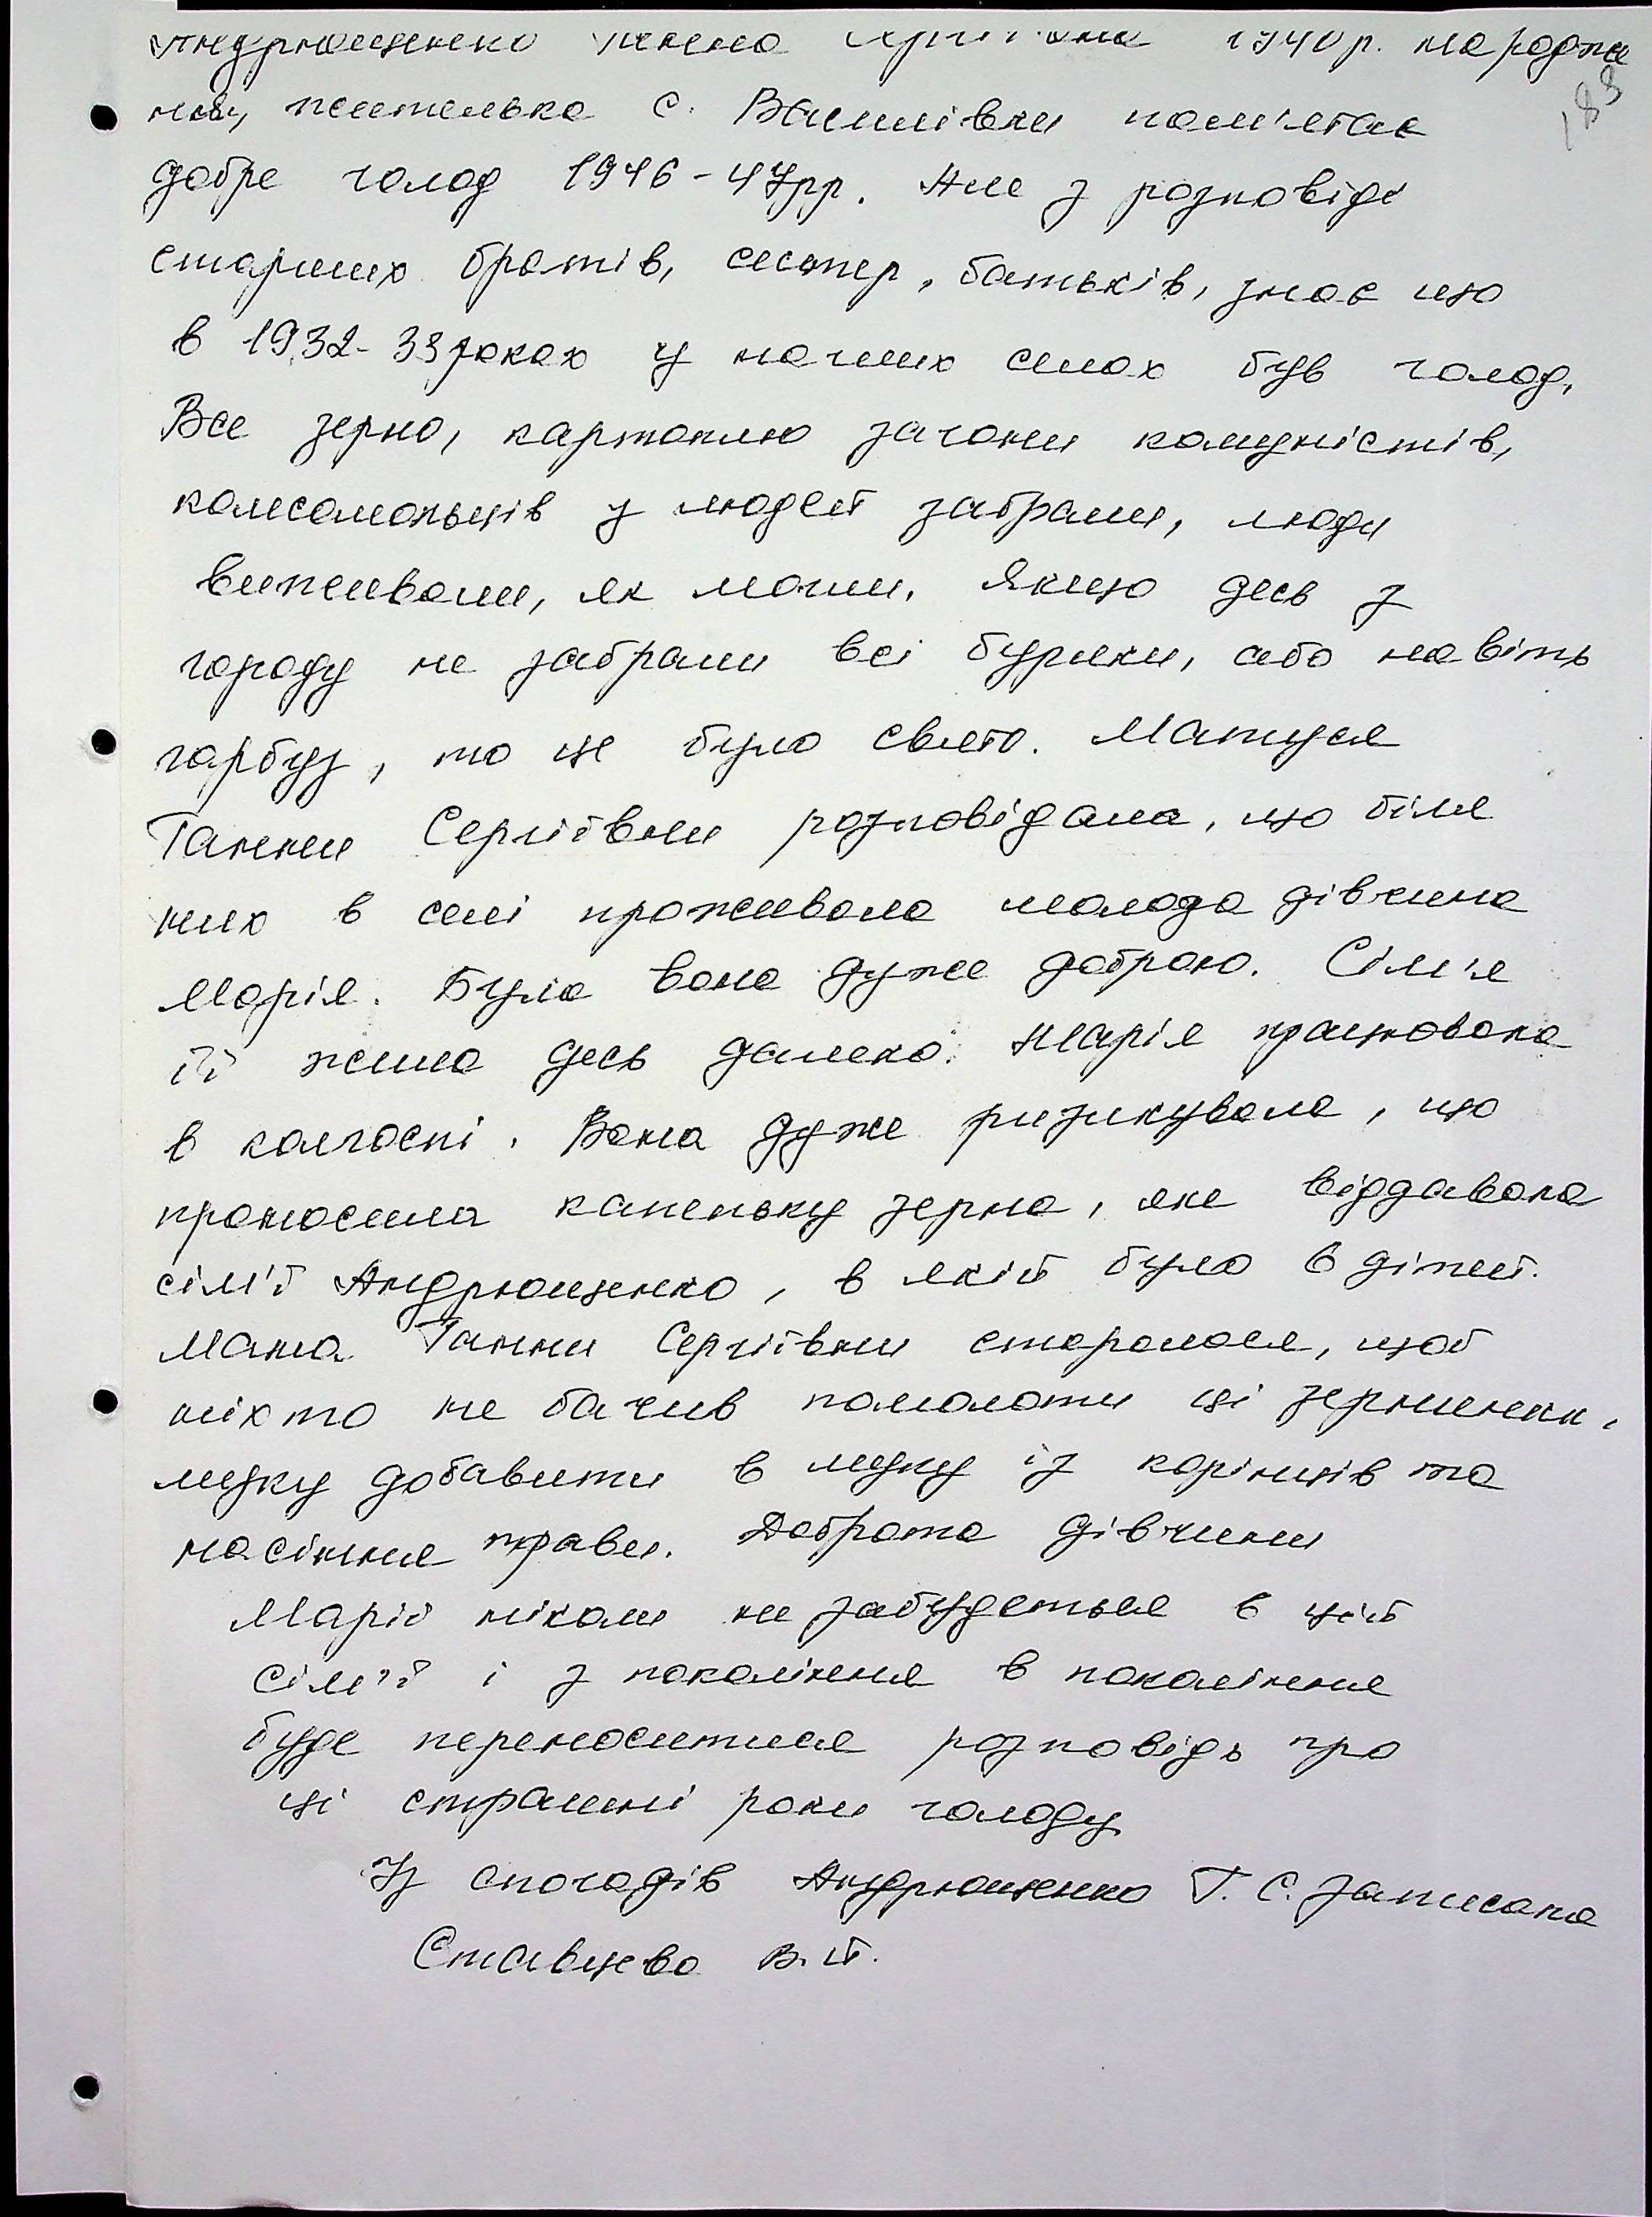 Андрющенко Ганна Сергіївна 1940 р. народже
ння, жителька с. Василівки пам'ятає
добре голод 1946-47рр. Але з розповіді
старших братів, сестер, батьків, знає що
в 1932-33 роках у наших селах був голод,
Все зерно, картоплю загони комуністів,
комсомольців у людей забрали, люди
виживали, як могли. Якщо десь з
городу не забрали всі буряки, або навіть
гарбуз, то це було свято. Матуся
Ганни Сергіївни розповідала, що біля
них в селі проживала молода дівчина
Марія. Була вона дуже доброю. Сім'я
її жила десь далеко. Марія працювала
в колгоспі. Вона дуже ризикувала, що
проносила жменьку зерна, яке віддавала
сім'ї Андрющенко, в якій було 6 дітей.
Мама Ганни Сергіївни старалася, щоб
ніхто не бачив помолоти ці зернинки,
муку добавити в муку із корінців та
насіння трави. Доброта дівчини
Марії ніколи не забудеться в цій
сім'ї і з покоління в покоління
буде переноситися розповідь про
ці страшні роки голоду
Із спогадів Андрющенко Г. С. записала
Ставцева В. Й.
183